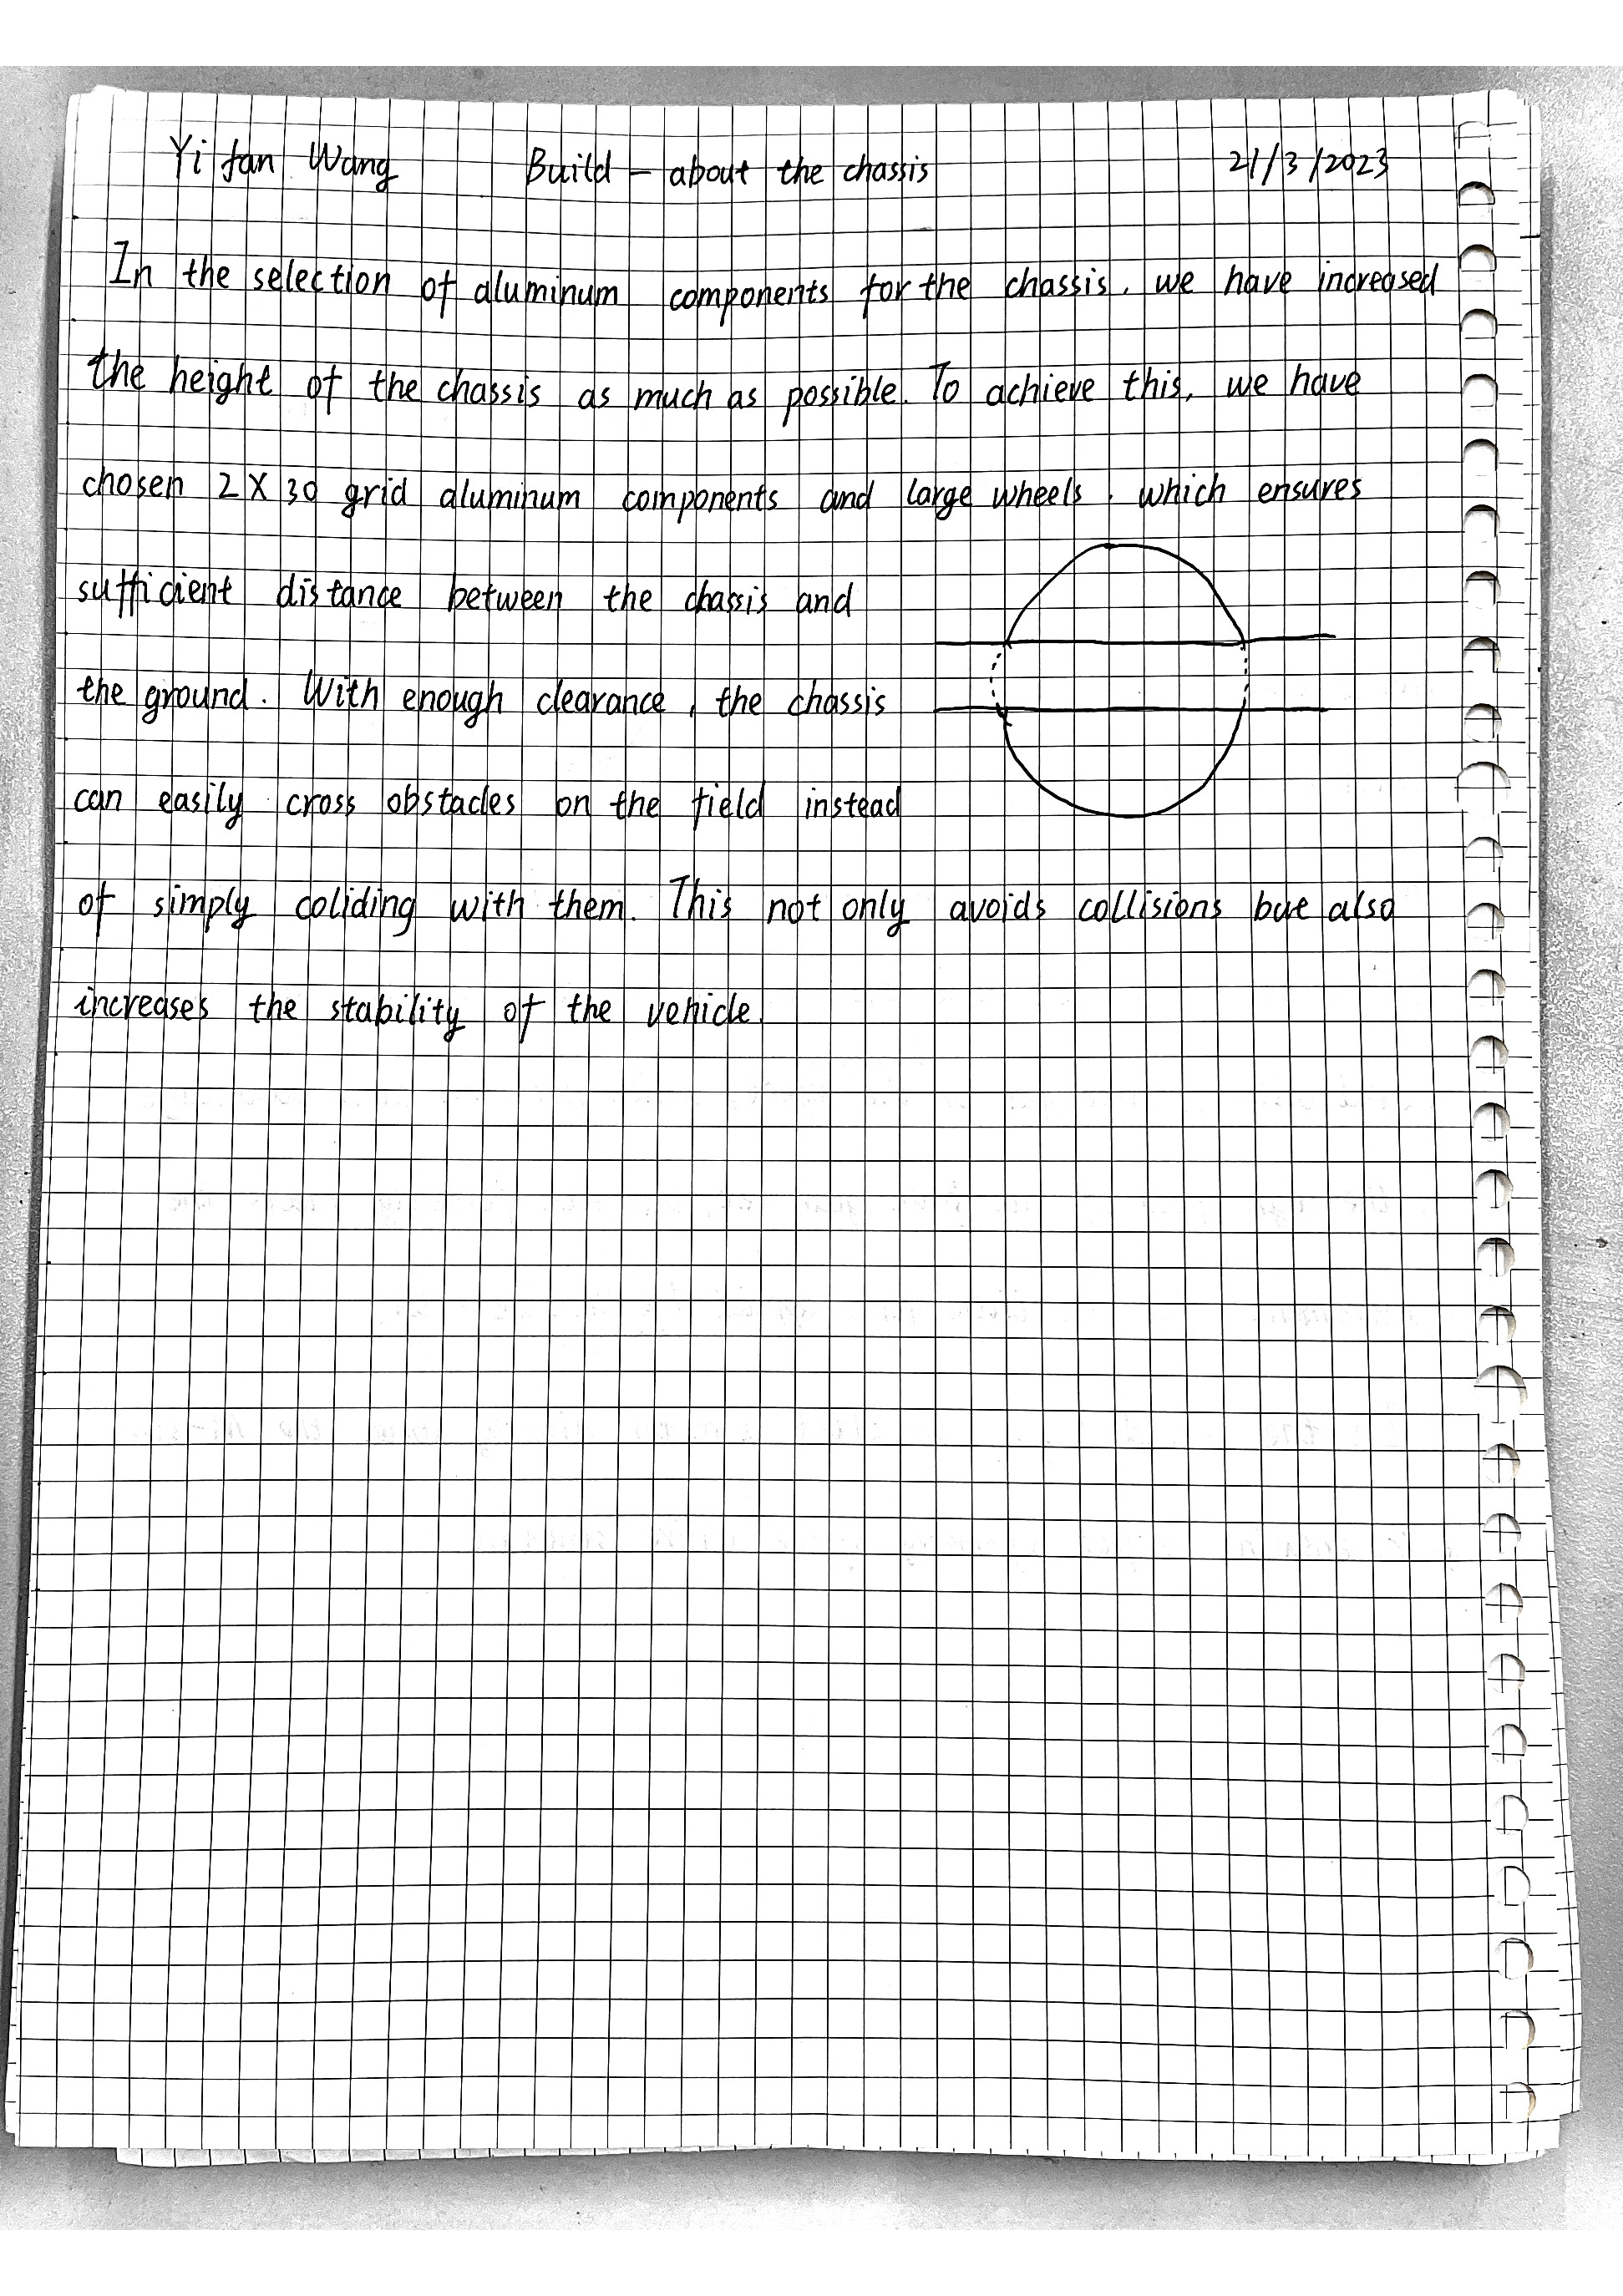 Yi fan Wang Build - about the chassis 21/3/2023
In the selection of aluminum components for the chassis, we have increased
the height of the chassis as much as possible. To achieve this, we have
chosen 2 X 30 grid aluminum components and large wheels, which ensures
sufficient distance between the chassis and
the ground. With enough clearance, the chassis
can easily cross obstacles on the field instead
of simply coliding with them. This not only avoids collisions but also
increases the stability of the vehicle.